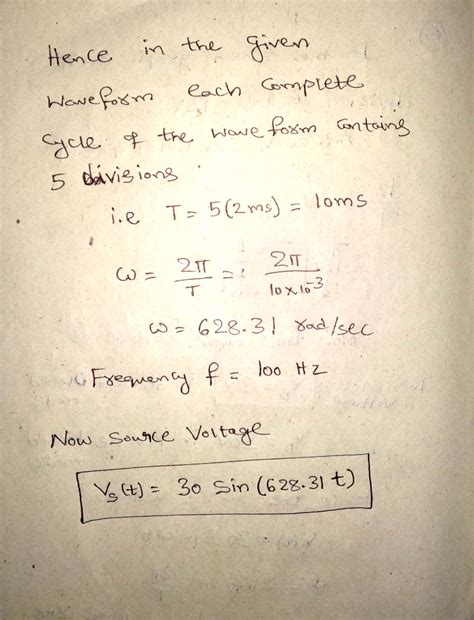 Hence in the given
Waveform each Complete
Cycle of the wave form Contains
5 divisions
i.e T = 5(2ms) = 10ms
ω = 2π/T = 2π/10x10^-3
ω = 628.31 rad/sec
Frequency f = 100 Hz
Now Source Voltage
Vs(t) = 30 Sin (628.31 t)